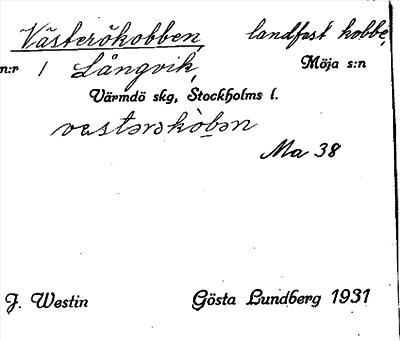 Västerökobben, landfast kobbe,
n:r 1 Långvik, Möja s:n
Värmdö skg, Stockholms l.
vastərəkòbən
Ma 38
J. Westin Gösta Lundberg 1931